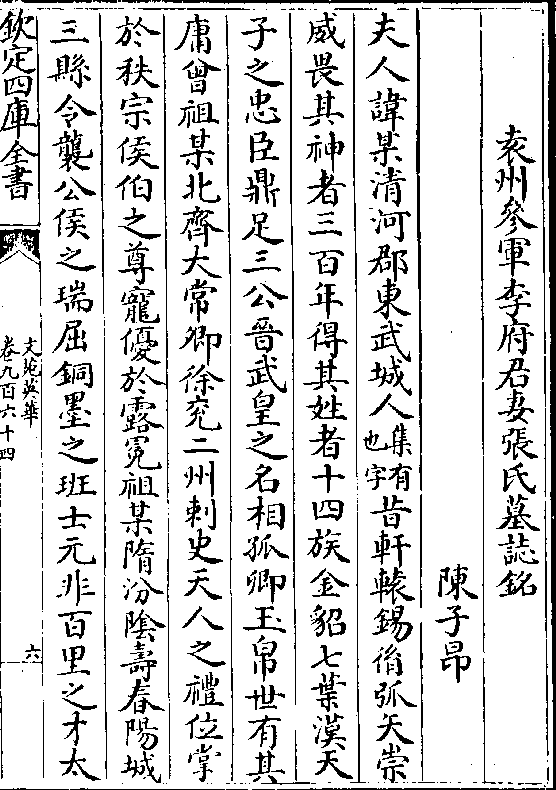 袁州參軍李府君妻張氏墓誌銘
陳子昂
夫人諱某清河郡東武城人集有也字昔軒轅錫胤弧矢崇
威畏其神者三百年得其姓者十四族金貂七葉漢天
子之忠臣鼎足三公晉武皇之名相孤卿玉帛世有其
庸曾祖某北齊大常卿徐兖二州刺史天人之禮位掌
於秩宗侯伯之尊寵優於露冕祖某隋汾陰壽春陽城
三縣令襲公侯之瑞屈銅墨之班士元非百里之才太
欽定四庫全書
文苑英華
卷九百六十四
六